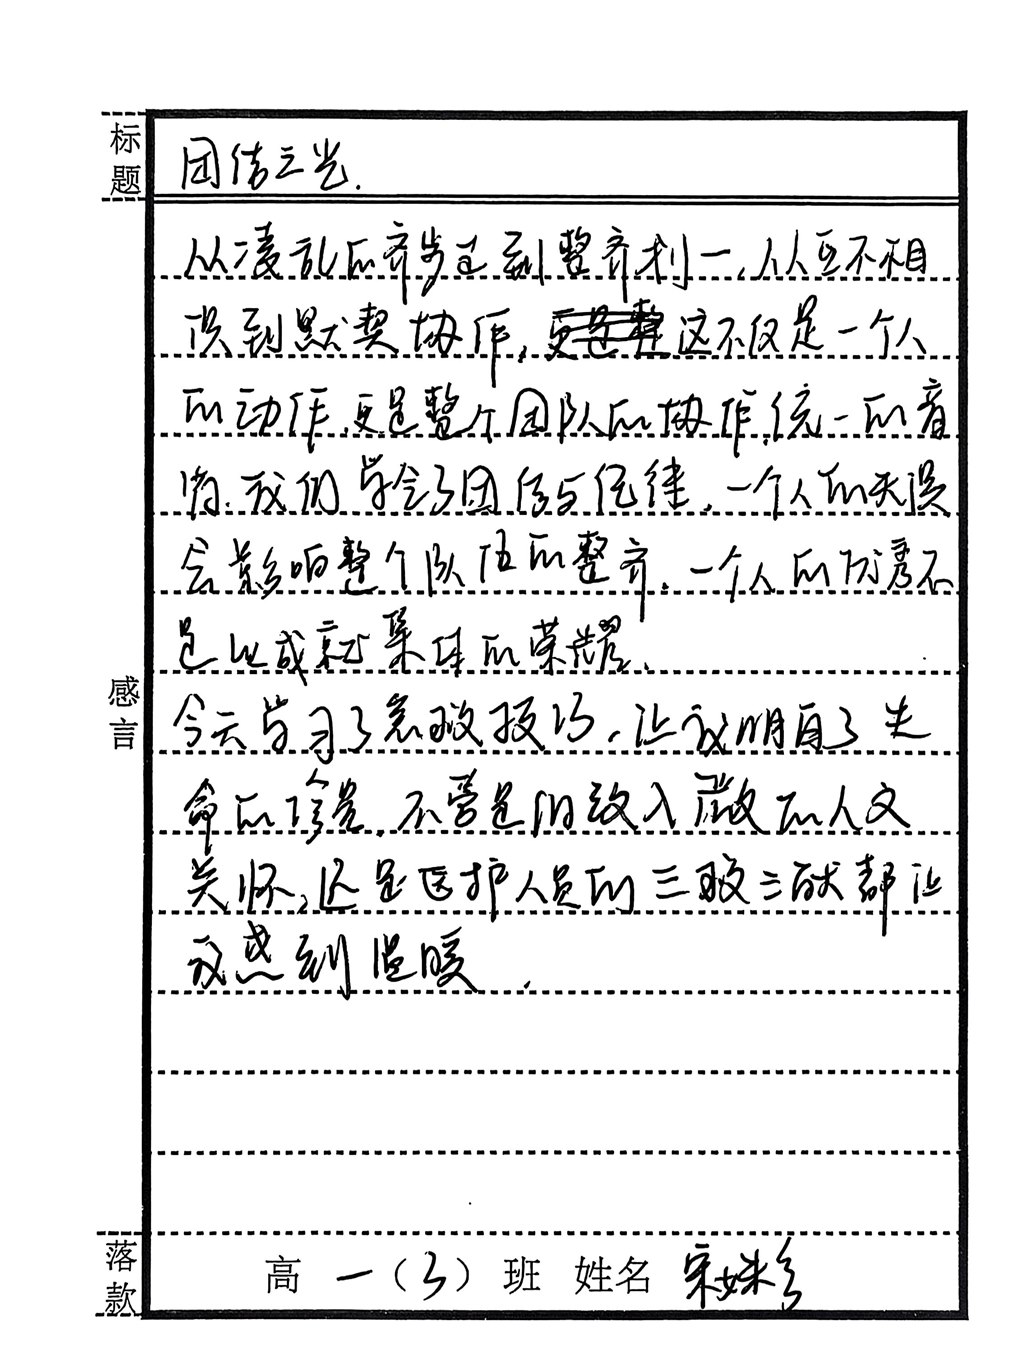 标题
团结之光.
从凌乱的齐步走到整齐划一,从互不相
识到默契协作,这不仅是一个人
的动作,更是整个团队的协作,统一的着
我们学会了团结与纪律,一个人的失误
会影响整个队伍的整齐,一个人的优秀不
足以成就集体的荣耀.
感言
今天学习了急救技巧,让我明白了生
命的珍贵,不管是细致入微的人文
关怀,还是医护人员的三救三献都让
我感到温暖.
落款
高一(3)班 姓名 宋姝